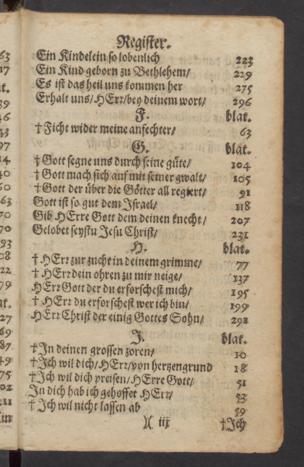 Register.
Ein Kindelein so lobenlich 223
Ein Kind geborn zu Bethlehem/ 229
Es ist das heil uns kommen her 275
Erhalt uns/ HErr/ bey deinem wort/ 296
F. blat.
† Ficht wider meine anfechter/ 63
G. blat.
† Gott segne uns durch seine güte/ 104
† Gott mach sich auf mit seiner gwalt/ 105
† Gott der über die Götter all regiert/ 91
Gott ist so gut dem Israel/ 118
Gib HErre Gott dem deinen knecht/ 207
Gelobet seystu Jesu Christ/ 231
H. blat.
† HErr zur zucht in deinem grimme/ 77
† HErr dein ohren zu mir neige/ 137
HErr Gott der du erforschest mich/ 195
† HErr du erforschest wer ich bin/ 199
HErr Christ der einig Gottes Sohn/ 291
J. blat.
† In deinen grossen zoren/ 10
† Ich wil dich/ HErr/ von hertzengrund 18
† Ich wil dich preisen/ HErre Gott/ 51
In dich hab ich gehoffet HErr/ 53
† Ich wil nicht lassen ab 59
N iij †Ich